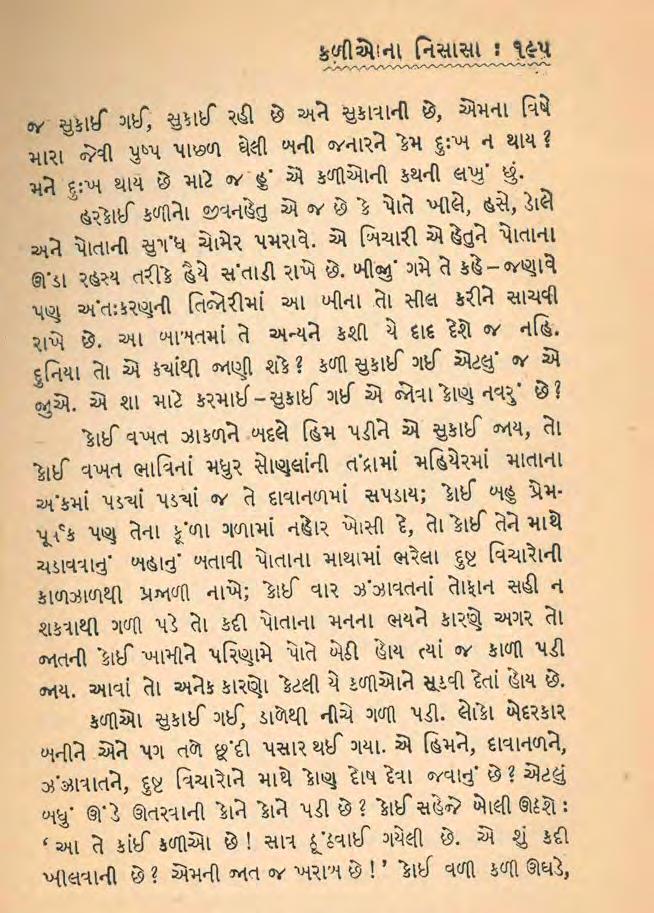 કળીઓના નિસાસા : ૧૯૫
જ સુકાઈ ગઈ, સુકાઈ રહી છે અને સુકાવાની છે, એમના વિષે
મારા જેવી પુષ્પ પાછળ ઘેલી બની જનારને કેમ દુઃખ ન થાય ?
મને દુઃખ થાય છે માટે જ હું એ કળીઓની કથની લખું છું.
હરકોઈ કળીનો જીવનહેતુ એ જ છે કે પોતે ખીલે, હસે, ડોલે
અને પોતાની સુગંધ ચોમેર પમરાવે. એ બિચારી એ હેતુને પોતાના
ઊંડા રહસ્ય તરીકે હૈયે સંતાડી રાખે છે. બીજું ગમે તે કહે–જણાવે
પણ અંતઃકરણની તિજોરીમાં આ બીના તો સીલ કરીને સાચવી
રાખે છે. આ બાબતમાં તે અન્યને કશી યે દાદ દેશે જ નહિ.
દુનિયા તો એ ક્યાંથી જાણી શકે ? કળી સુકાઈ ગઈ એટલું જ એ
જુએ. એ શા માટે કરમાઈ–સુકાઈ ગઈ એ જોવા કોણ નવરું છે ?
કોઈ વખત ઝાકળને બદલે હિમ પડીને એ સુકાઈ જાય, તો
કોઈ વખત ભાવિનાં મધુર સોણલાંની તંદ્રામાં મહિયેરમાં માતાના
અંકમાં પડયાં પડયાં જ તે દાવાનળમાં સપડાય; કોઈ બહુ પ્રેમ-
પૂર્વક પણ તેના કૂંળા ગળામાં નહોર ખોસી દે, તો કોઈ તેને માથે
ચડાવવાનું બહાનું બતાવી પોતાના માથામાં ભરેલા દુષ્ટ વિચારોની
કાળઝાળથી પ્રજાળી નાખે; કોઈ વાર ઝંઝાવતનાં તોફાન સહી ન
શકવાથી ગળી પડે તો કદી પોતાના મનના ભયને કારણે અગર તો
જાતની કોઈ ખામીને પરિણામે પોતે બેઠી હોય ત્યાં જ કાળી પડી
જાય. આવાં તો અનેક કારણો કેટલી યે કળીઓને સૂકવી દેતાં હોય છે.
કળીઓ સુકાઈ ગઈ, ડાળેથી નીચે ગળી પડી. લોકો બેદરકાર
બનીને એને પગ તળે છૂંદી પસાર થઈ ગયા. એ હિમને, દાવાનળને,
ઝંઝાવાતને, દુષ્ટ વિચારોને માથે કોણ દોષ દેવા જવાનું છે ? એટલું
બધું ઊંડે ઊતરવાની કોને કોને પડી છે ? કોઈ સહેજે બોલી ઊઠશે :
‘ આ તે કાંઈ કળીઓ છે ! સાવ ઠૂંઠવાઈ ગયેલી છે. એ શું કદી
ખીલવાની છે ? એમની જાત જ ખરાબ છે ! ’ કોઈ વળી કળી ઊઘડે,